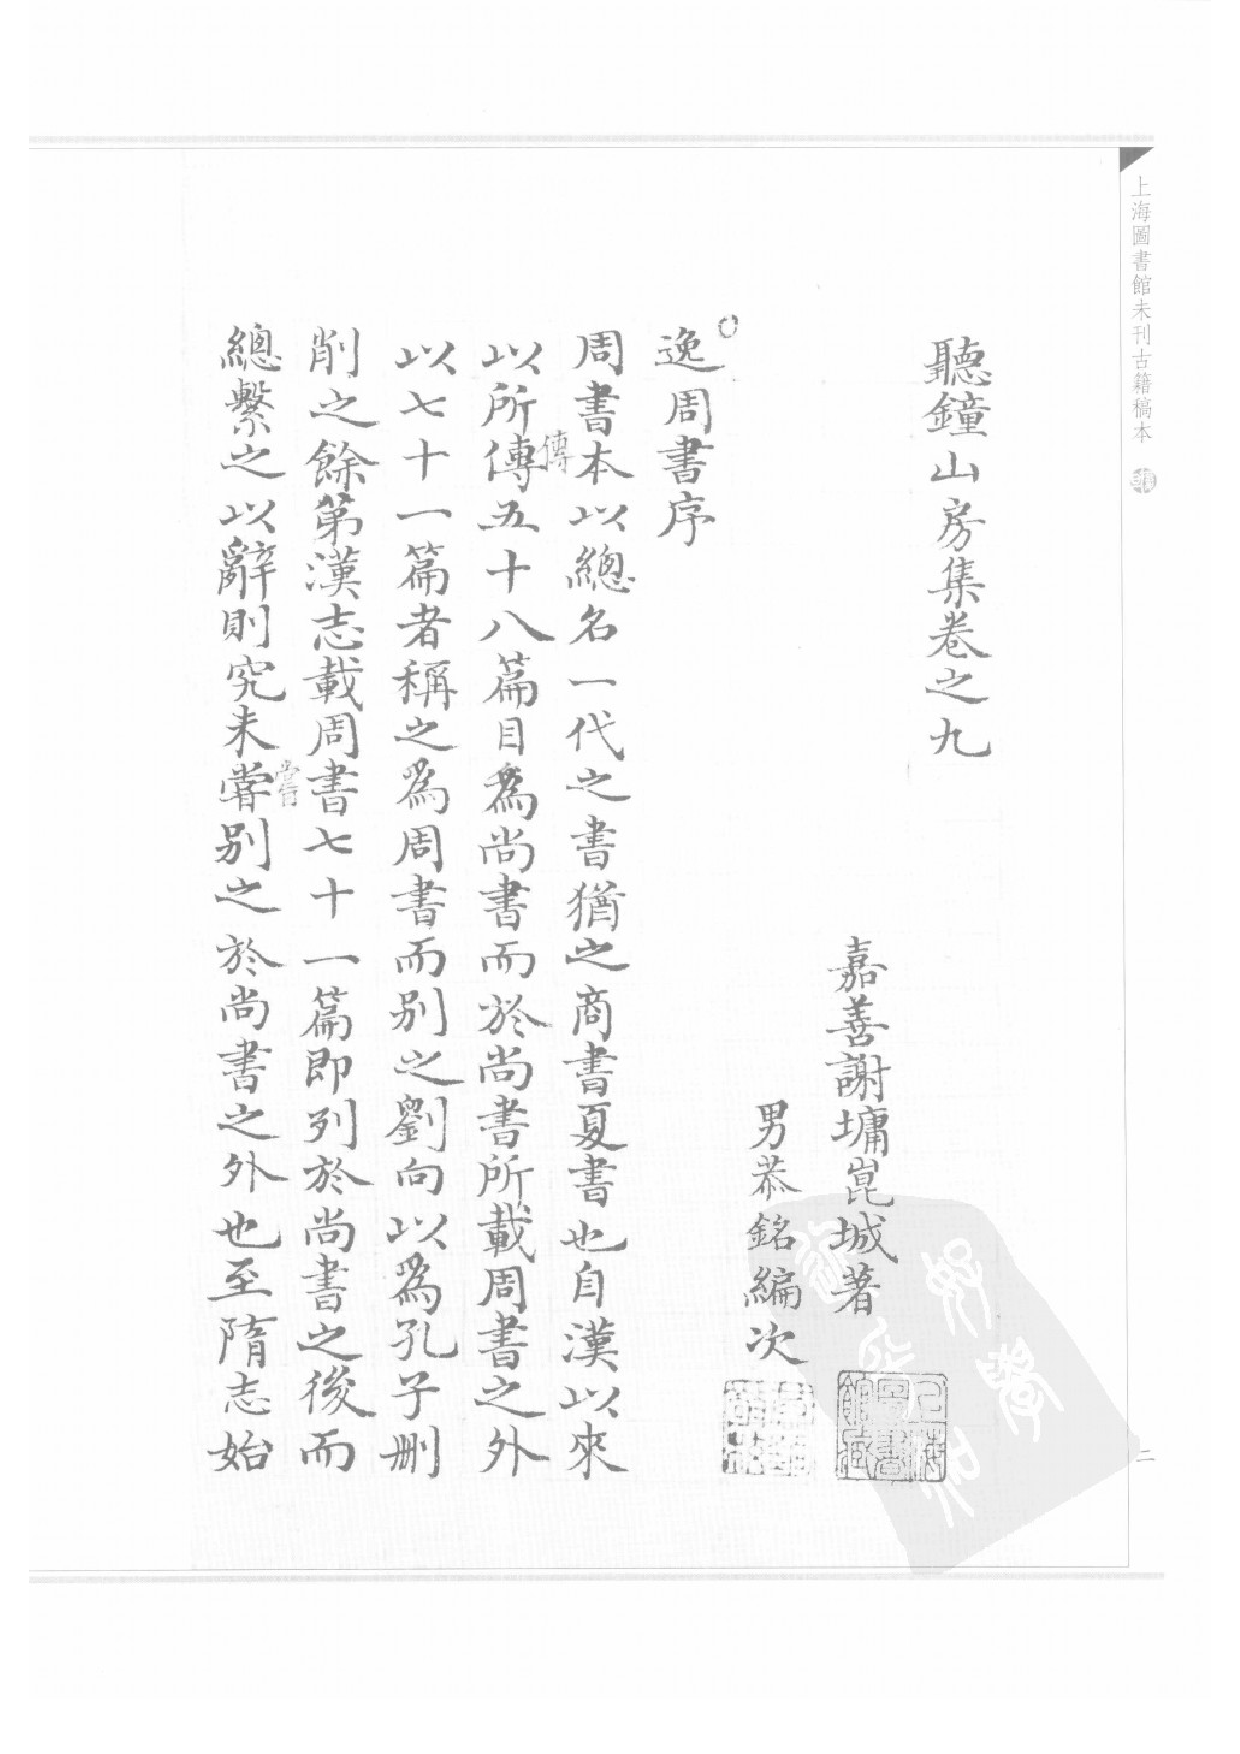 上海圖書館未刊古籍稿本
二
聽鐘山房集卷之九
嘉善謝墉崑城著
男恭銘編次
上海圖書館藏
逸周書序
周書本以總名一代之書猶之商書夏書也自漢以來
傳
以所傳五十八篇目爲尚書而於尚書所載周書之外
以七十一篇者稱之爲周書而別之劉向以爲孔子刪
削之餘第漢志載周書七十一篇即列於尚書之後而
嘗
總繫之以辭則究未嘗別之於尚書之外也至隋志始